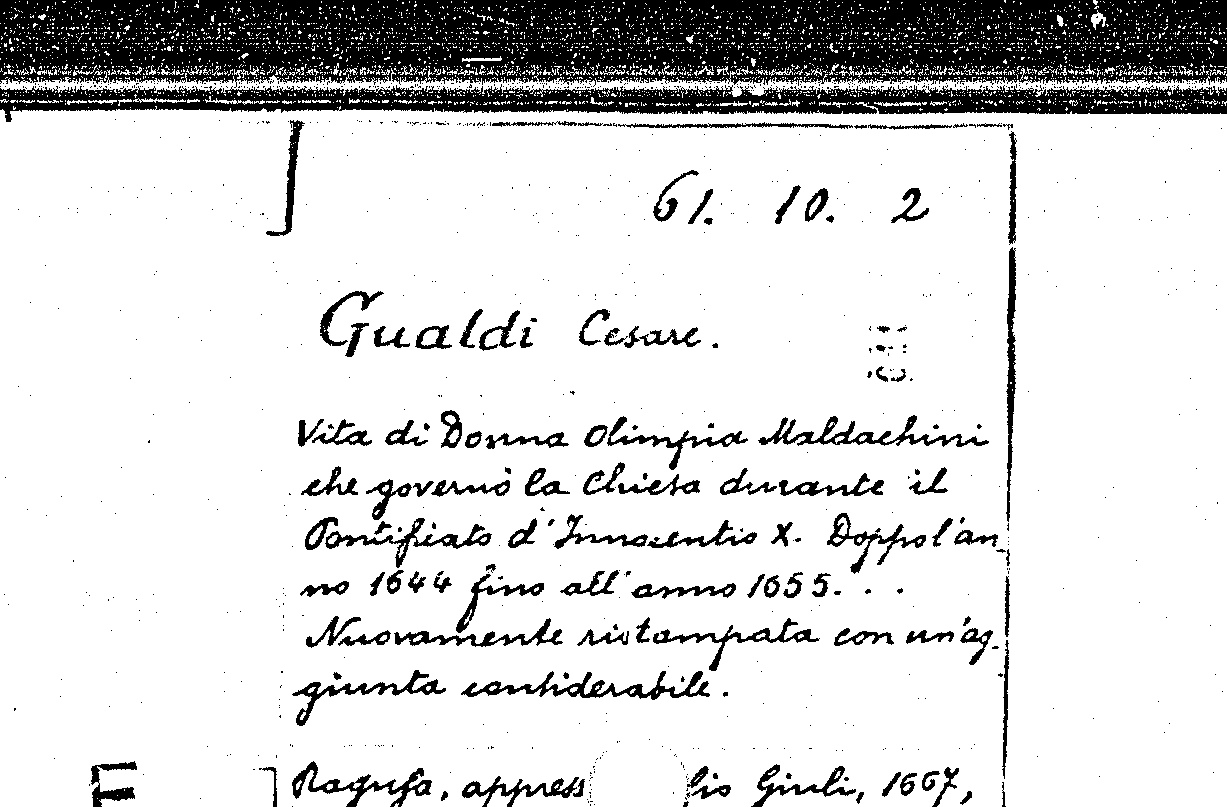 61. 10. 2
Gualdi Cesare.
Vita di Donna Olimpia Maldachini
che governò la Chiesa durante il
Pontificato d'Innocentio X. Doppo l'an_
no 1644 fino all'anno 1655. . .
Nuovamente ristampata con un'ag_
giunta considerabile.
Ragusa, appress lio Giuli, 1667,